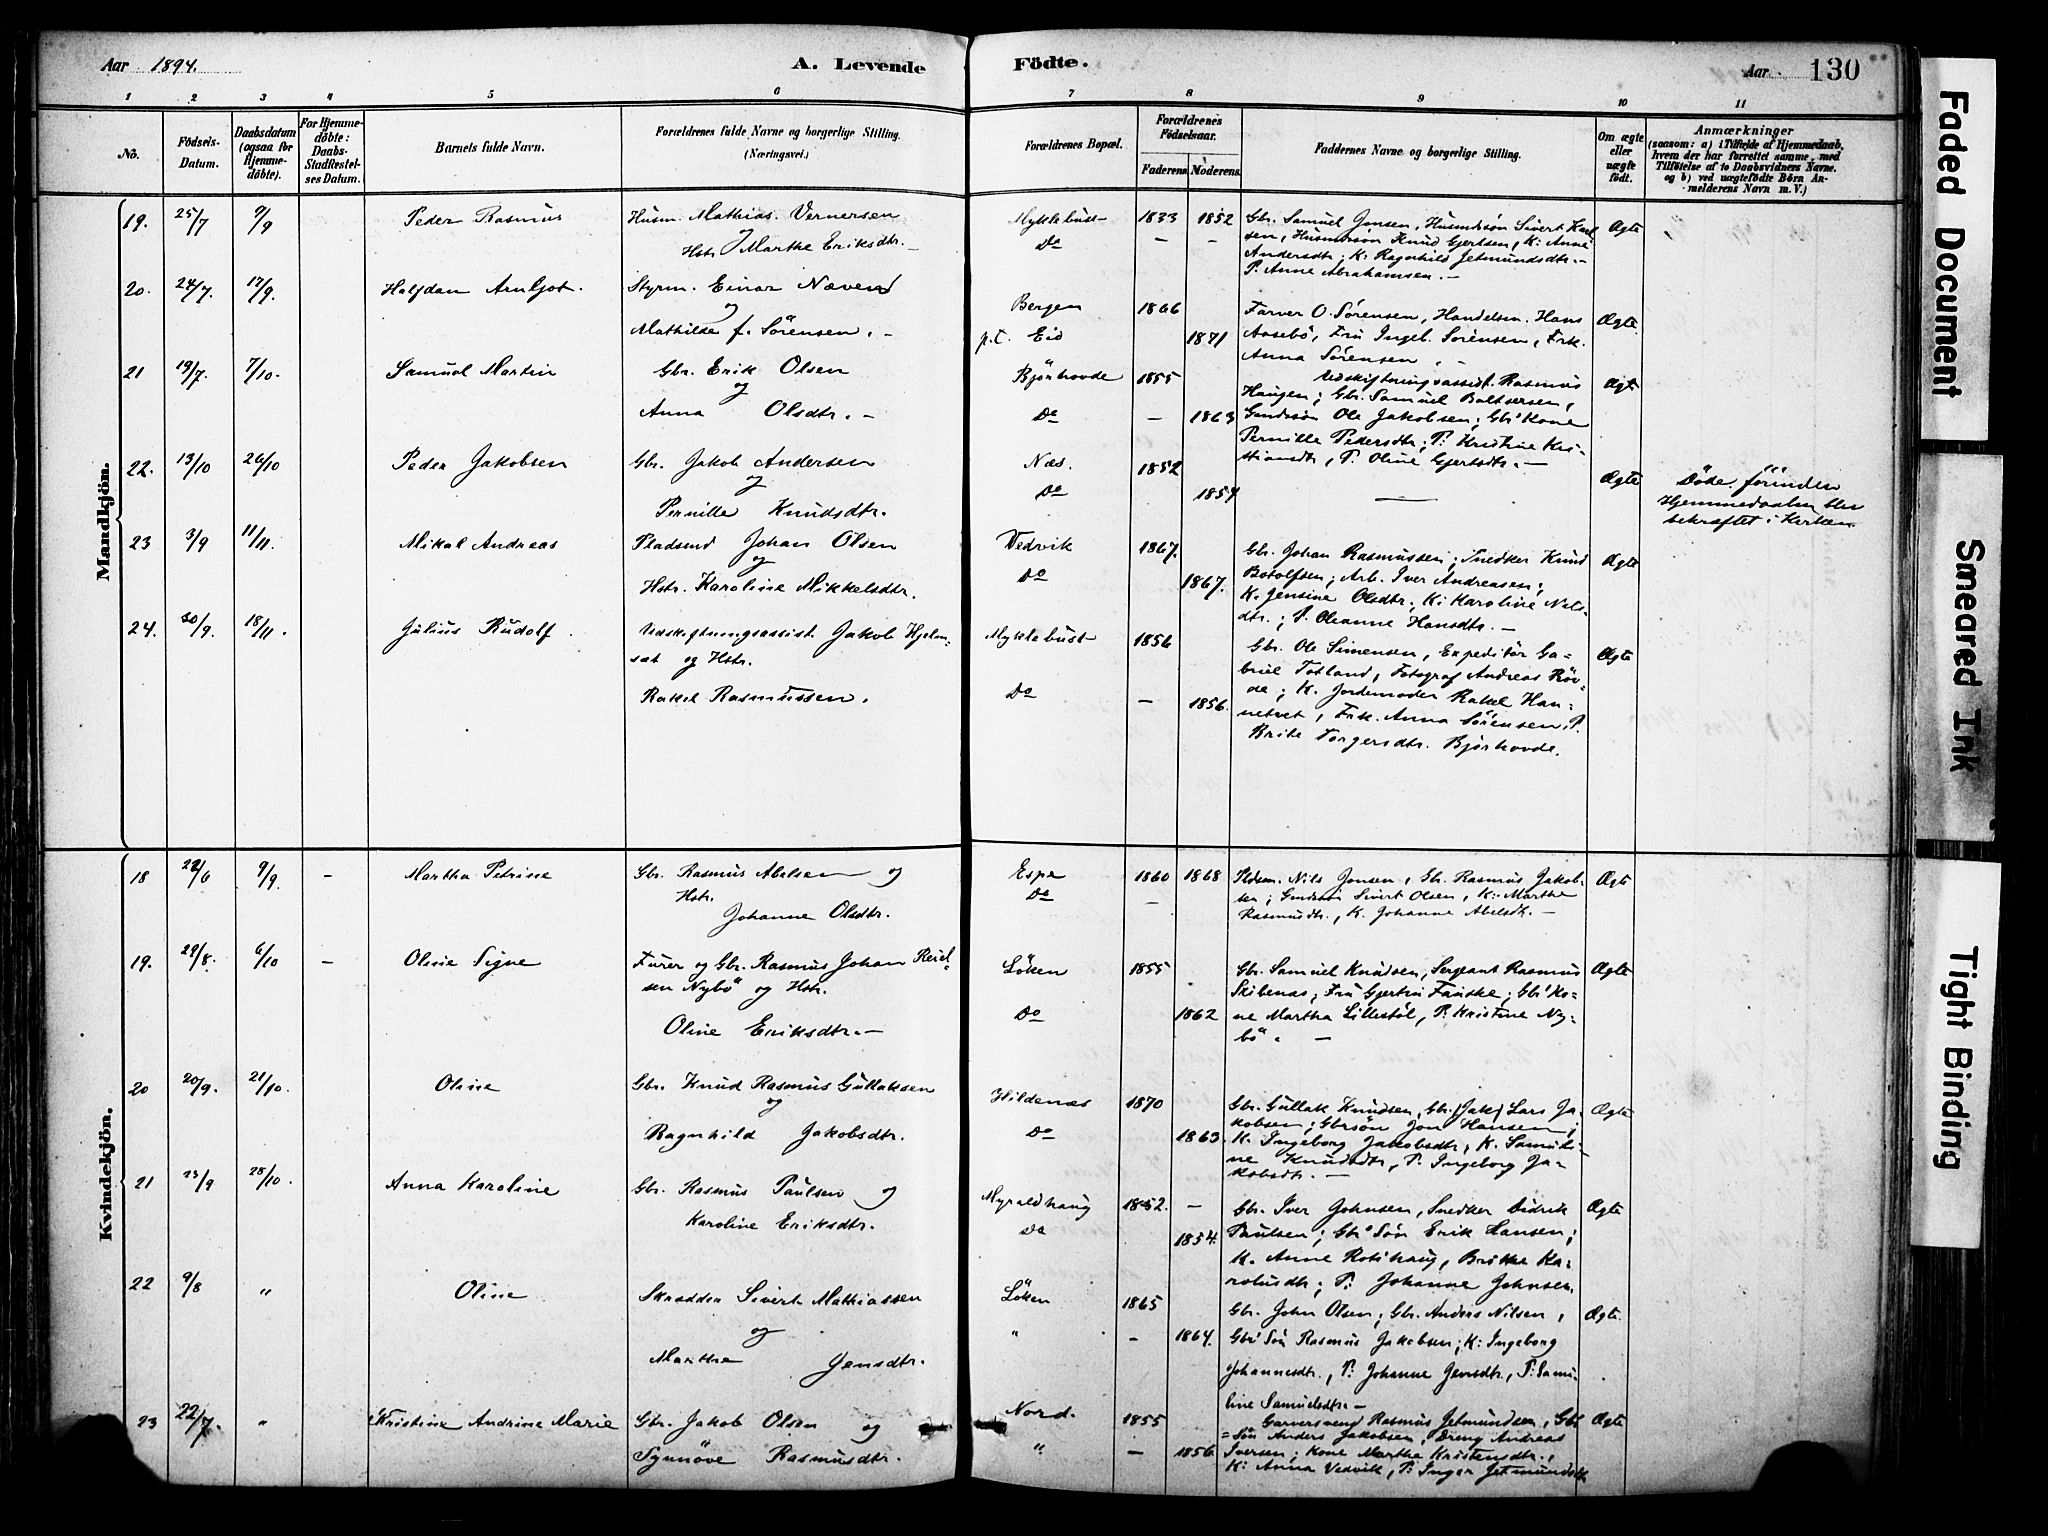 Aar 1894.
A. Levende Födte.
Aar 130
1 2 3 4 5 6 7 8 9 10 11
No.
Födsels-
Datum.
Daabsdatum
(ogsaa for
Hjemme-
döbte).
For Hjemme-
döbte:
Daabs-
Stadfæstel-
ses Datum.
Barnets fulde Navn.
Forældrenes fulde Navne og borgerlige Stilling.
(Næringsvei.)
Forældrenes Bopæl.
Forældrenes
Födselsaar.
Faderens. Moderens.
Faddernes Navne og borgerlige Stilling.
Om ægte
eller
uægte
født.
Anmærkninger
(saasom: a) i Tilfælde af Hjemmedaab,
hvem der har forrettet samme, med
Tilföielse af to Daabsvidners Navne,
og b) ved uægtefödte Börn An-
melderens Navn m. V.)
Mandkjön.
19. 25/7 9/9 Peder Rasmus
Husm. Mathias Vernersen
Hstr. Marthe Eriksdtr. —
Myklebust
Do
1833 1852
— —
Gbr. Samuel Jonsen, Husmdsøn Sivert Karl
sen, Husmdsøn Knud Gjertsen, K: Anne
Andersdtr; K: Ragnhild Jetmundsdtr. —
P. Anne Abrahamsen. —
Ægte
20. 24/7 17/9. Halfdan Arnljot.
Styrm. Einar Nævend
og
Mathilde f. Sörensen. —
Bergen
p.t. Eid
1866
1871
Farver O. Sørensen, Handelsm. Hans
Aasebö, Fru Ingeb. Sørensen, Frk.
Anna Sørensen. —
Ægte
21 19/7. 7/10. Samuel Martin
Gbr. Erik Olsen
og
Anna Olsdtr. —
Bjørhovde
Do
1855
— 1863
Udskiftningsassist. Rasmus
Haugen; Gbr. Samuel Baltsersen,
Gmdssøn Ole Jakobsen; Gbr' Kone
Pernille Pedersdtr; P: Kristine Kri-
stiansdtr, P. Oline Gjertsdtr. —
Ægte
22. 13/10 26/10 Peder Jakobsen
Gbr. Jakob Andersen
og
Pernille Knudsdtr.
Næs.
Do
1852
1857
—
Ægte
Døde förinden
Hjemmedaaben blev
bekræftet i Kirken.
23 3/9 11/11. Mikal Andreas
Pladsmd Johan Olsen
og
Hstr. Karoline Mikkelsdtr.
Vedvik
Do
1867.
1867.
Gbr. Johan Rasmussen; Snedker Knud
Botolfsen; Arb. Iver Andreasen;
K. Jensine Olsdtr.; K: Karoline Nils-
dtr.; P. Oleanne Hansdtr. —
Ægte
24. 20/9. 18/11. Julius Rudolf.
Udskiftningsassist. Jakob Hjelm-
sæt og Hstr.
Rakel Rasmussen.
Myklebust
Do
1856
— 1856.
Gbr. Ole Simensen, Expeditør Ga-
briel Totland, Fotograf Andreas Röv-
de; K. Jordemoder Rakel Han-
netvet, Frk. Anna Sørensen, P.
Brite Torgersdtr. Bjørhovde.
Ægte
Kvindekjön.
18 22/6 9/9. — Martha Petrine
Gbr. Rasmus Abelsen og
Hstr.
Johanne Olsdtr.
Espe
Do
1860 1868
—
Pldsm. Nils Jonsen, Gbr. Rasmus Jakob-
sen; Gmdssøn Sivert Olsen, K: Marthe
Rasmusdtr., K. Johanne Abelsdtr. —
Ægte
19. 29/8. 6/10 — Oline Signe
Furer og Gbr. Rasmus Johan Reiel-
sen Nybö og Hstr.
Oline Eriksdtr. —
Löken
Do
1855
1862
Gbr. Samuel Knudsen, Sergeant Rasmus
Skibenes; Fru Gjertru Fauske; Gbr' Ko-
ne Martha Lillestöl, P: Kristine Ny-
bö. —
Ægte
20 20/9. 21/10. Oline
Gbr. Knud Rasmus Gullaksen
og
Ragnhild Jakobsdtr.
Hildenæs
Do
1870
1863.
Gbr. Gullak Knudsen, Gbr. (Jak) Lars Ja-
kobsen; Gbrsøn Jon Hansen;
K. Ingeborg Jakobsdtr, K. Samuli-
ne Knudsdtr, P. Ingeborg Ja-
kobsdtr. —
Ægte
21 23/9 28/10. Anna Karoline
Gbr. Rasmus Paulsen og
Karoline Eriksdtr.
Myraldhaug
Do
1852. —
1854.
Gbr. Iver Johnsen, Snedker Didrik
Paulsen; Gbr' Søn Erik Hansen;
K. Anne Rotihaug, Brithe Ka-
rolusdtr; P: Johanne Johnsen.
Ægte
22 9/8 " Oline
Skrædder Sivert Mathiassen
og
Marthe Jensdtr.
Löken
"
1865
— 1864.
Gbr. John Olsen; Gbr. Anders Nilsen,
Gbr' Søn Rasmus Jakobsen; K: Ingeborg
Johannesdtr, P: Johanne Jensdtr, P: Samu-
line Samuelsdtr. —
Ægte.
23 22/7. " Kristine Andrine Marie
Gbr. Jakob Olsen og
Synnöve Rasmusdtr.
Nord.
"
1855
— 1856
Garversvend Rasmus Jetmundsen, Gbr
= Søn Anders Jakobsen, Dreng Andreas
Iversen; Kone Martha Kristensdtr.,
K: Anna Vedvik, P: Inger Jetmundsdtr
Ægte
Faded Document
Smeared Ink
Tight Binding